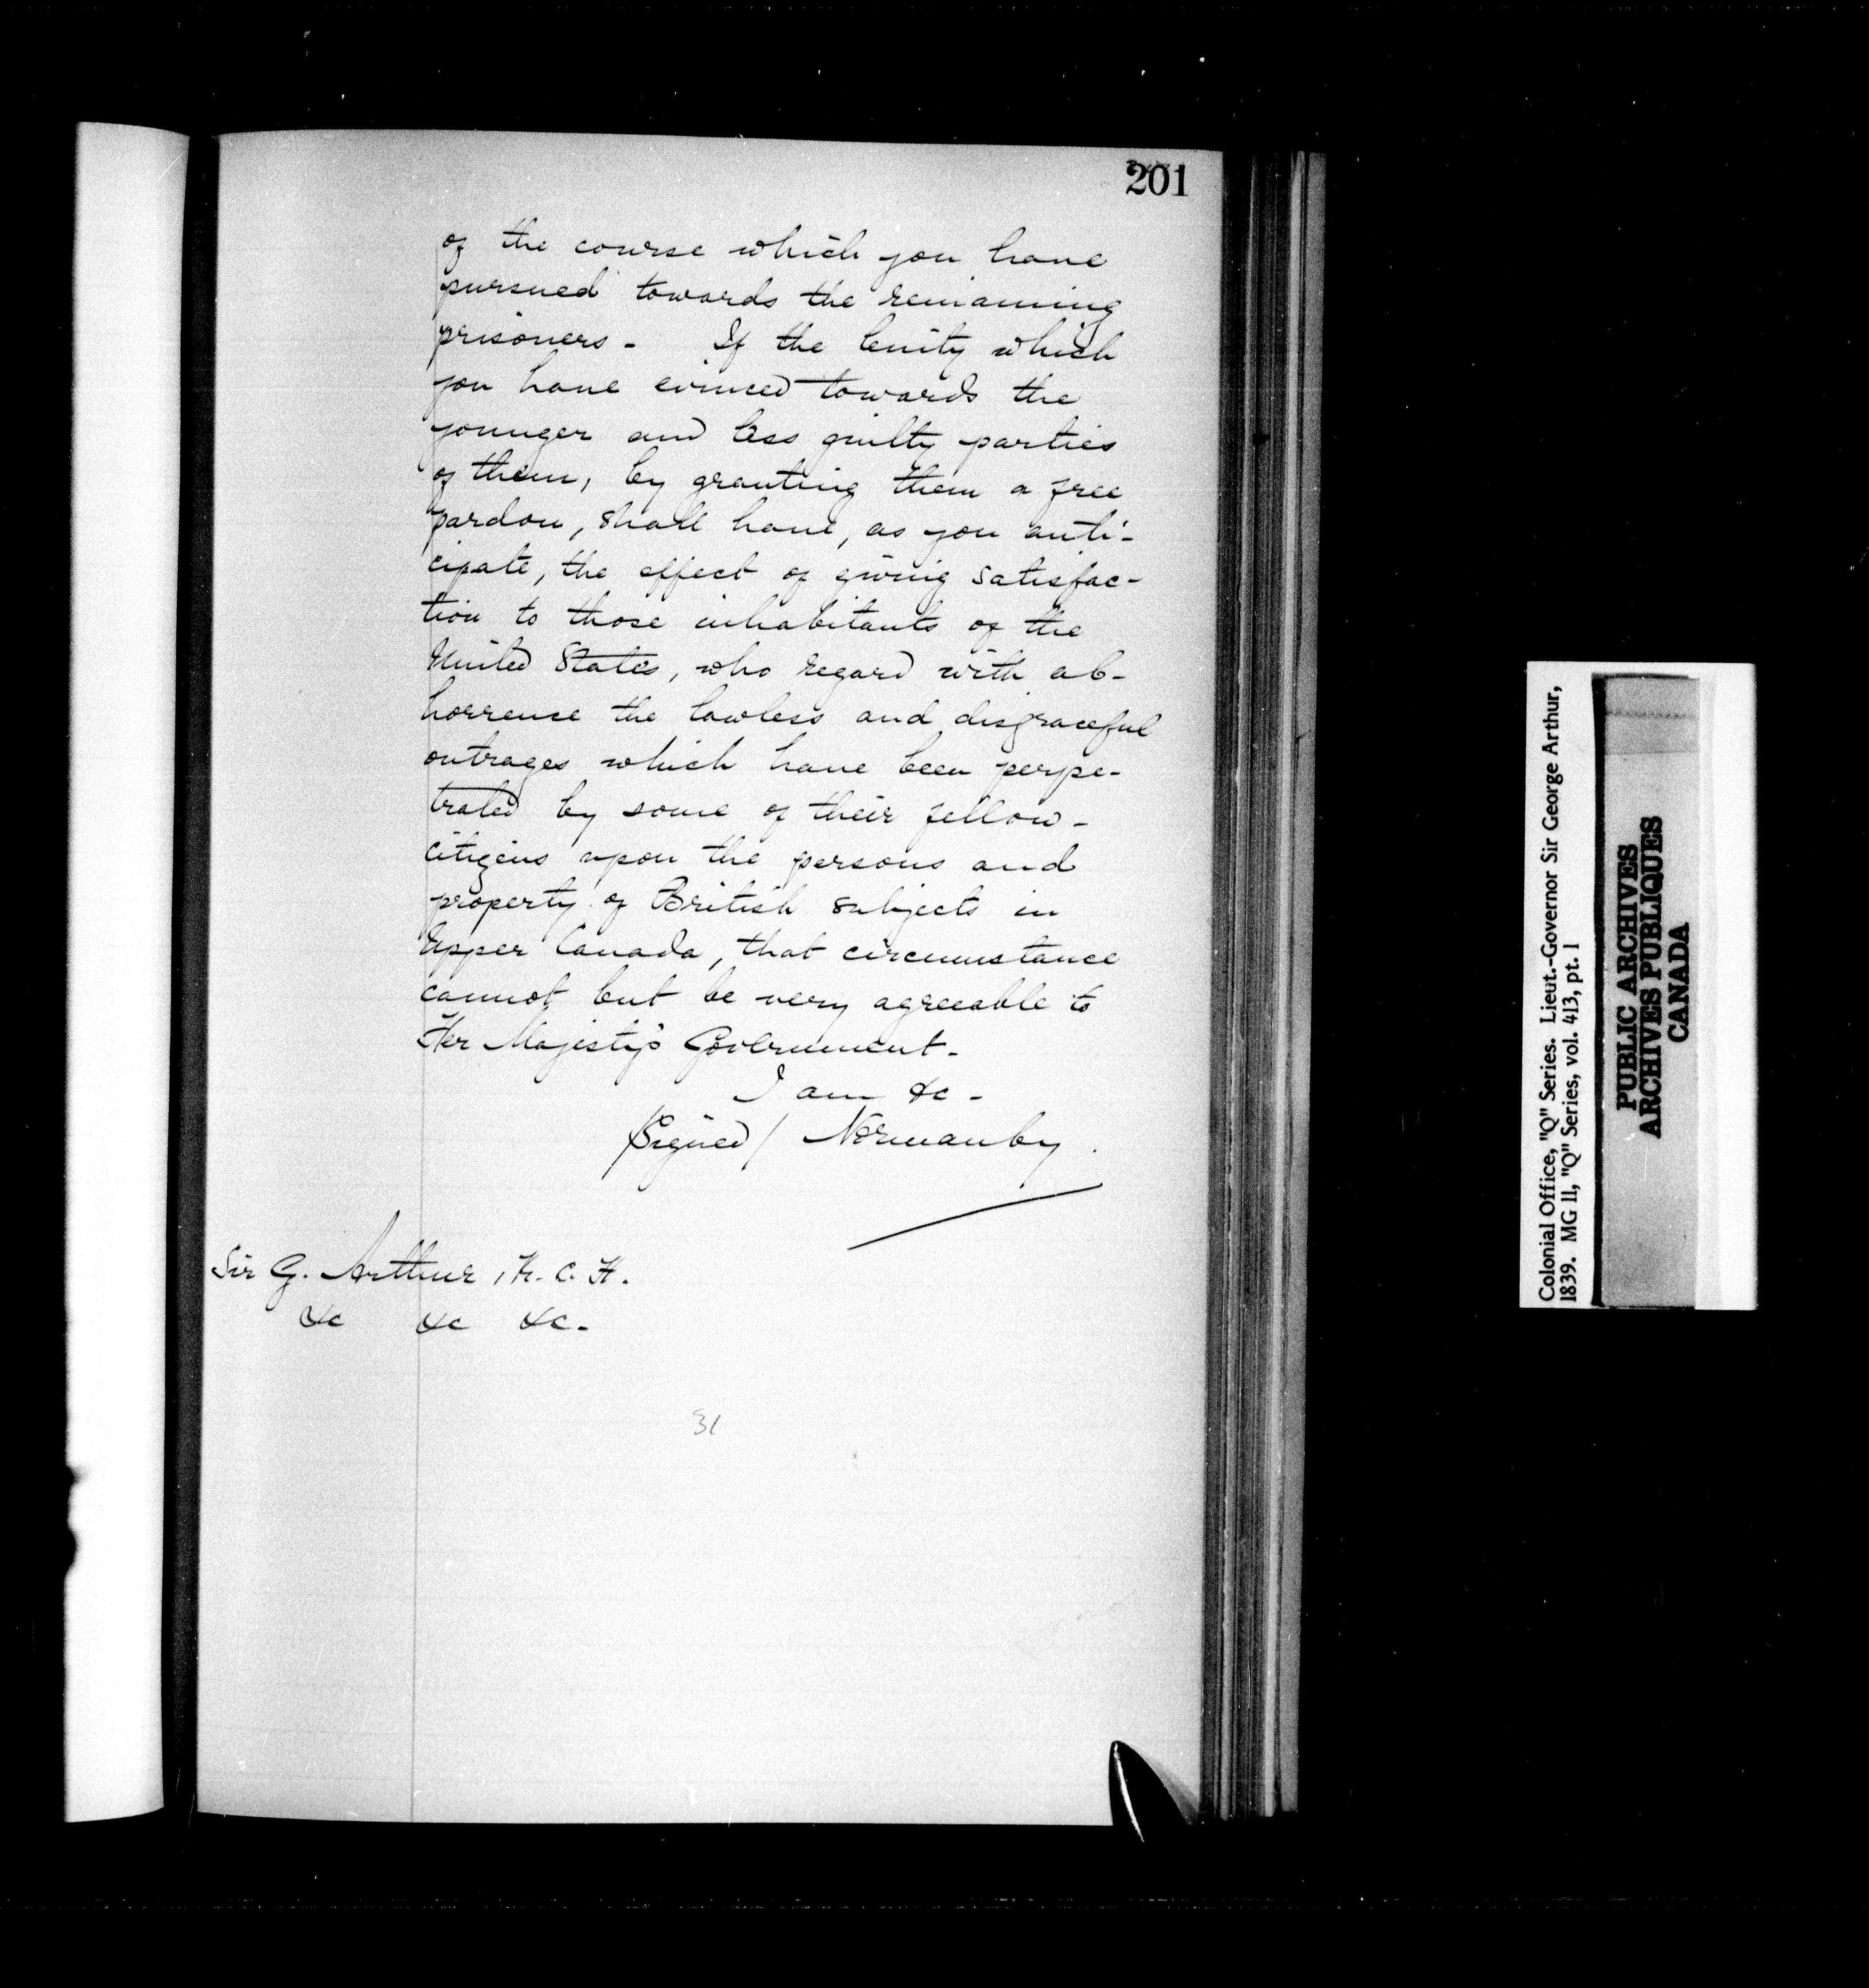 201
of the course which you have
pursued towards the remaining
prisoners - If the lenity which
you have evinced towards the
younger and less guilty parties
of them, by granting them a free
pardon, shall have, as you anti-
cipate, the effect of giving satisfac-
tion to those inhabitants of the
United States, who regard with ab-
horrence the lawless and disgraceful
outrages which have been perpe-
trated by some of their fellow-
citizens upon the persons and
property of British subjects in
Upper Canada, that circumstance
cannot but be very agreeable to
Her Majesty's Government -
I am &c -
(Signed) Normanby.
Sir G. Arthur, K. C. H.
&c &c &c -
31
Colonial Office, "Q" Series. Lieut.-Governor Sir George Arthur,
1839. MG 11, "Q" Series, vol. 413, pt. 1
PUBLIC ARCHIVES
ARCHIVES PUBLIQUES
CANADA